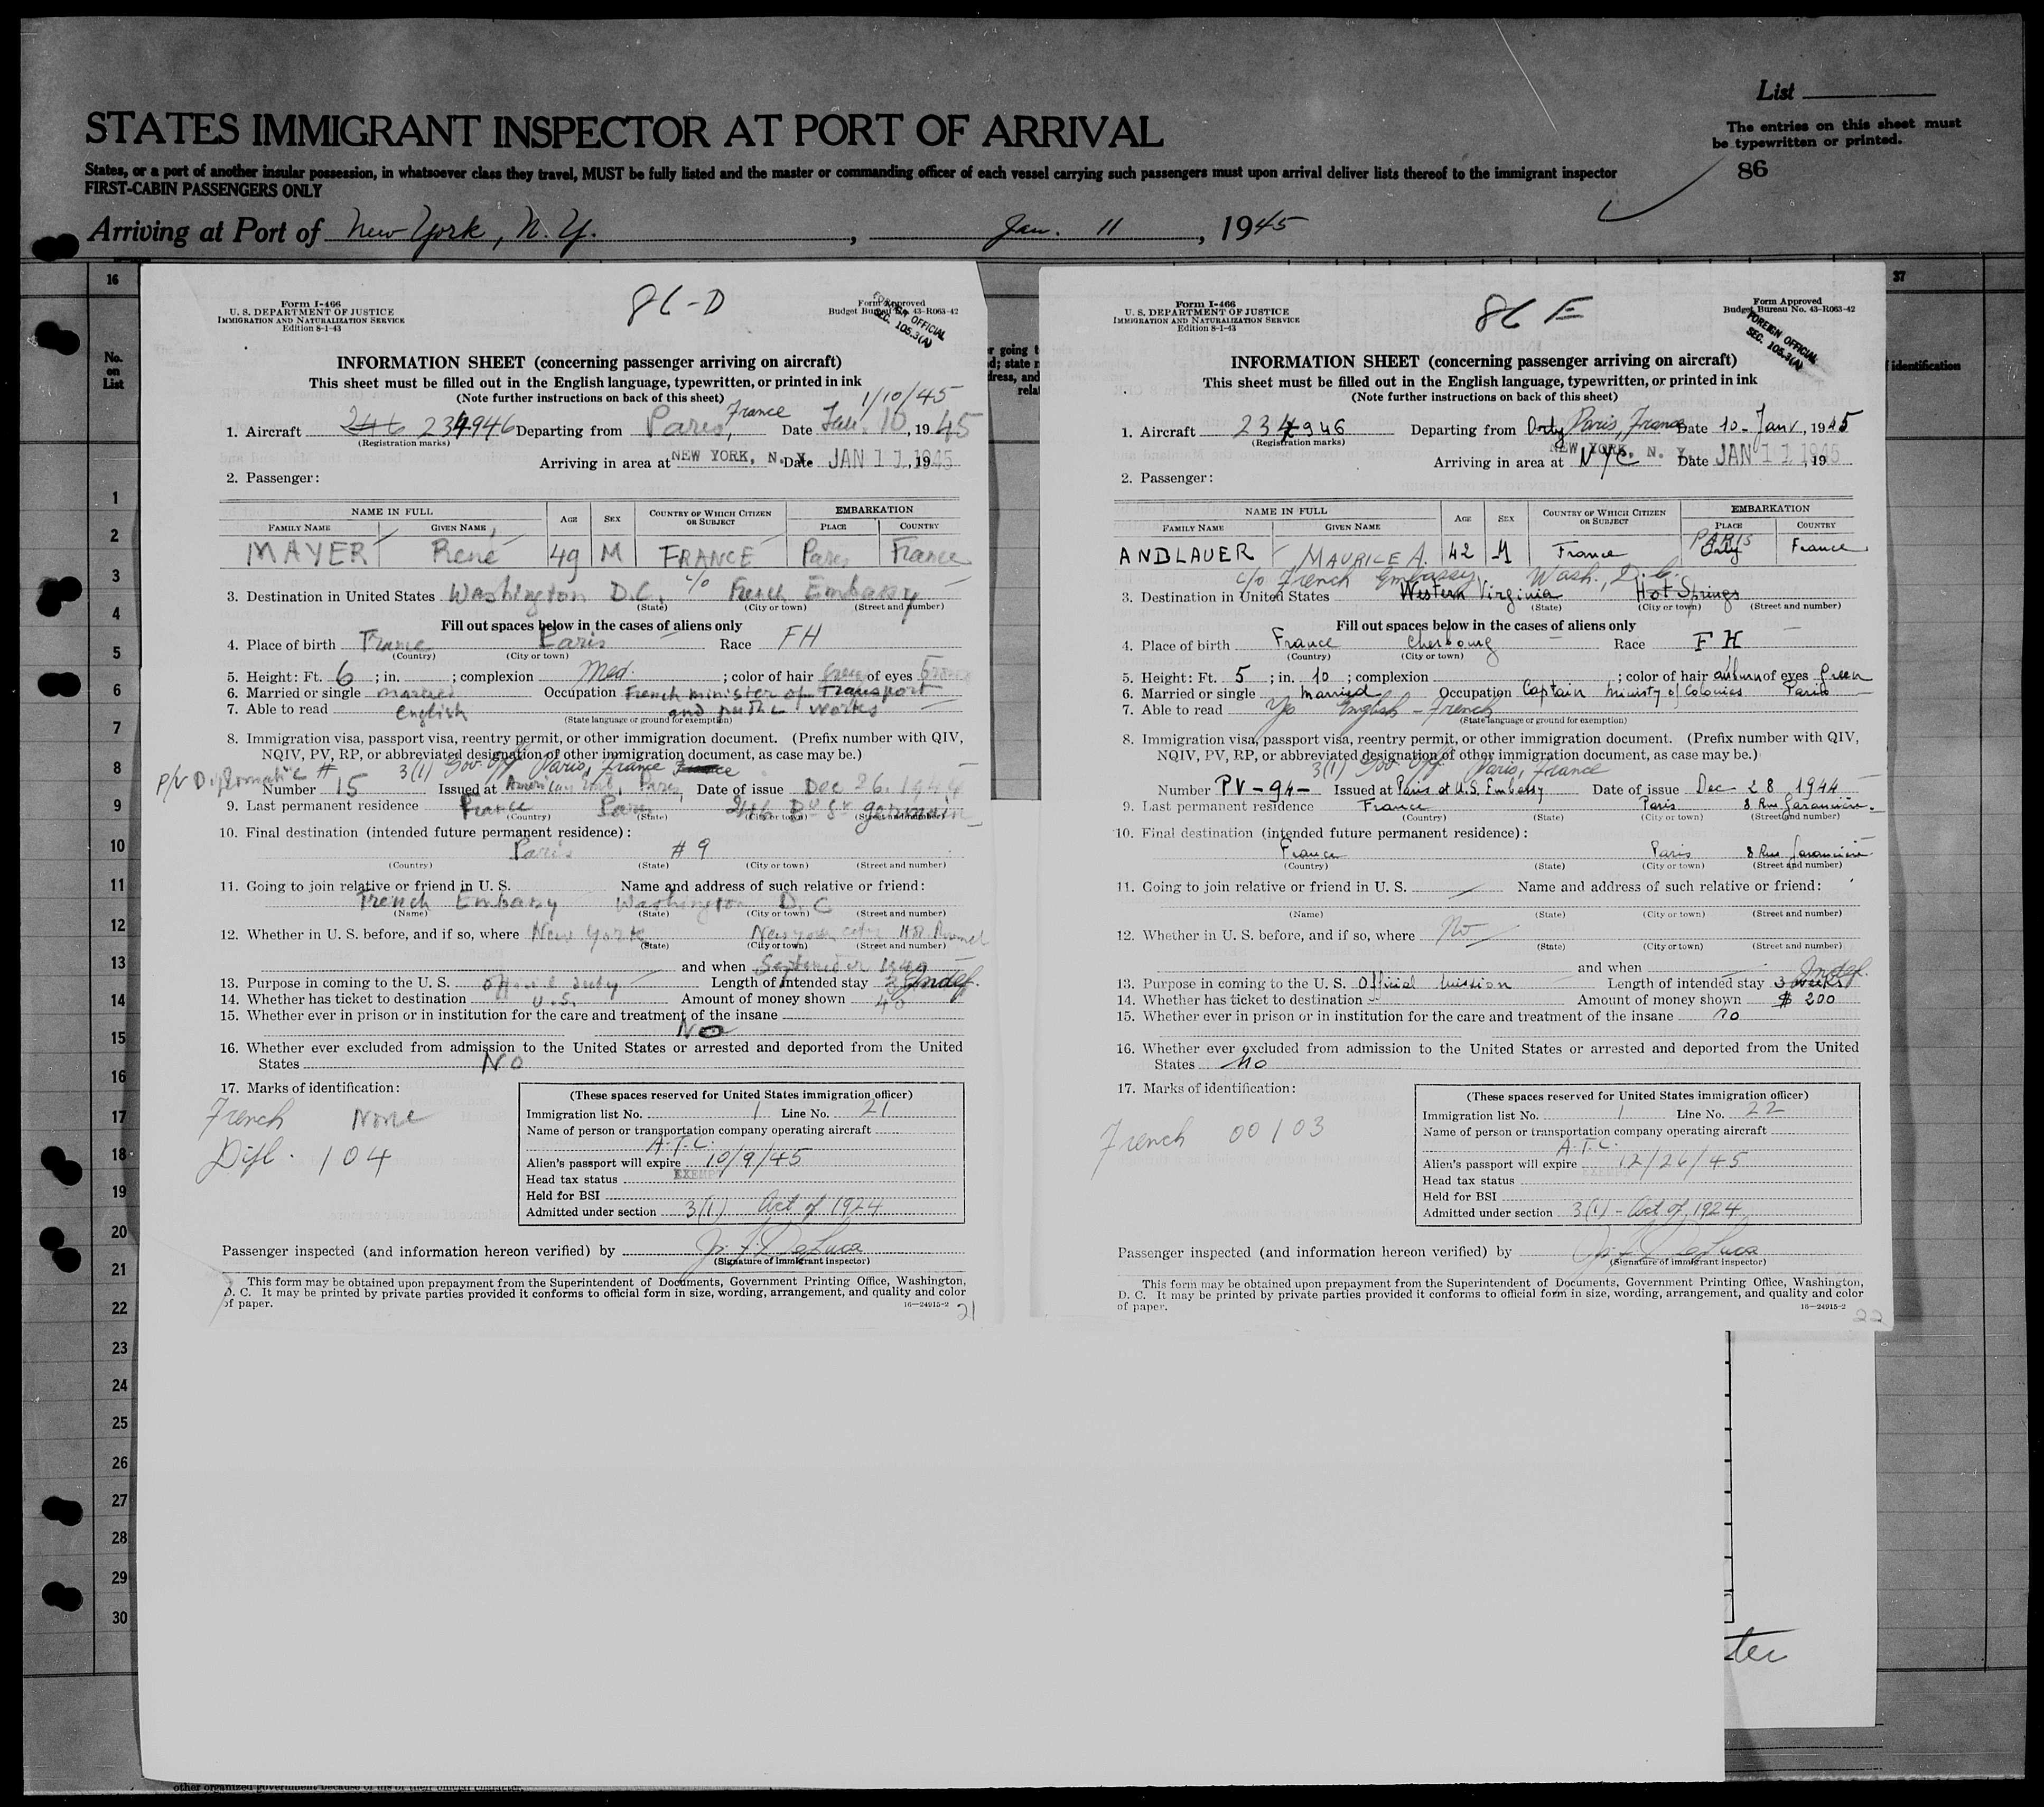 List
STATES IMMIGRANT INSPECTOR AT PORT OF ARRIVAL
The entries on this sheet must
be typewritten or printed.
States, or a port of another insular possession, in whatsoever class they travel, MUST be fully listed and the master or commanding officer of each vessel carrying such passengers must upon arrival deliver lists thereof to the immigrant inspector
86
FIRST-CABIN PASSENGERS ONLY
Arriving at Port of New York, N. Y., Jan. 11, 1945
16
37
No.
on
List
identification
1
2
3
4
5
6
7
8
9
10
11
12
13
14
15
16
17
18
19
20
21
22
23
24
25
26
27
28
29
30
Form I-466
U. S. DEPARTMENT OF JUSTICE
IMMIGRATION AND NATURALIZATION SERVICE
Edition 8-1-43
86-D
Form Approved
Budget Bureau No. 43-R063-42
OFFICIAL
SEC. 105.3(A)
INFORMATION SHEET (concerning passenger arriving on aircraft)
This sheet must be filled out in the English language, typewritten, or printed in ink
(Note further instructions on back of this sheet)
1/10/45
1. Aircraft 246 234946 Departing from Paris, France Date Jan. 10, 1945
(Registration marks)
Arriving in area at NEW YORK, N. Y. Date JAN 11 1945, 19
2. Passenger:
NAME IN FULL AGE SEX COUNTRY OF WHICH CITIZEN OR SUBJECT EMBARKATION
FAMILY NAME GIVEN NAME PLACE COUNTRY
MAYER René 49 M FRANCE Paris France
3. Destination in United States Washington D.C. c/o French Embassy
(State) (City or town) (Street and number)
Fill out spaces below in the cases of aliens only
4. Place of birth France Paris Race FH
(Country) (City or town)
5. Height: Ft. 6; in. ; complexion Med. ; color of hair of eyes
6. Married or single married Occupation French minister of Transport
7. Able to read English and public works
(State language or ground for exemption)
8. Immigration visa, passport visa, reentry permit, or other immigration document. (Prefix number with QIV,
NQIV, PV, RP, or abbreviated designation of other immigration document, as case may be.)
P/V Diplomatic # 3(1) Gov. Off Paris, France
Number 15 Issued at American Emb. Paris, Date of issue Dec 26, 1944
9. Last permanent residence France Paris 246 Bd St germain
(Country) (State) (City or town) (Street and number)
10. Final destination (intended future permanent residence):
Paris #9
(Country) (State) (City or town) (Street and number)
11. Going to join relative or friend in U. S. Name and address of such relative or friend:
French Embassy Washington D.C
(Name) (State) (City or town) (Street and number)
12. Whether in U. S. before, and if so, where New York New York city
(State) (City or town) (Street and number)
and when September
13. Purpose in coming to the U. S. official duty Length of intended stay Indef.
14. Whether has ticket to destination U.S. Amount of money shown 40
15. Whether ever in prison or in institution for the care and treatment of the insane
No
16. Whether ever excluded from admission to the United States or arrested and deported from the United
States NO
17. Marks of identification:
French None
Dipl. 104
(These spaces reserved for United States immigration officer)
Immigration list No. 1 Line No. 21
Name of person or transportation company operating aircraft
A.T.C.
Alien's passport will expire 10/9/45
Head tax status EXEMPT
Held for BSI
Admitted under section 3(1) Act of 1924
Passenger inspected (and information hereon verified) by
(Signature of immigrant inspector)
This form may be obtained upon prepayment from the Superintendent of Documents, Government Printing Office, Washington,
D. C. It may be printed by private parties provided it conforms to official form in size, wording, arrangement, and quality and color
of paper.
16—24915-2
21
Form I-466
U. S. DEPARTMENT OF JUSTICE
IMMIGRATION AND NATURALIZATION SERVICE
Edition 8-1-43
86 E
Form Approved
Budget Bureau No. 43-R063-42
FOREIGN OFFICIAL
SEC. 105.3(A)
INFORMATION SHEET (concerning passenger arriving on aircraft)
This sheet must be filled out in the English language, typewritten, or printed in ink
(Note further instructions on back of this sheet)
1. Aircraft 234946 Departing from Orly Paris, France Date 10 - Janv, 1945
(Registration marks)
Arriving in area at NEW YORK, N. Y. NYC Date JAN 11 1945, 19
2. Passenger:
NAME IN FULL AGE SEX COUNTRY OF WHICH CITIZEN OR SUBJECT EMBARKATION
FAMILY NAME GIVEN NAME PLACE COUNTRY
ANDLAUER MAURICE A. 42 M France PARIS Orly France
c/o French Embassy, Wash., D.C.
3. Destination in United States Western Virginia Hot Springs
(State) (City or town) (Street and number)
Fill out spaces below in the cases of aliens only
4. Place of birth France Cherbourg Race F H
(Country) (City or town)
5. Height: Ft. 5; in. 10; complexion ; color of hair auburn of eyes green
6. Married or single married Occupation Captain Ministry of Colonies Paris
7. Able to read Yes English - French
(State language or ground for exemption)
8. Immigration visa, passport visa, reentry permit, or other immigration document. (Prefix number with QIV,
NQIV, PV, RP, or abbreviated designation of other immigration document, as case may be.)
3(1) Gov. Off. Paris, France
Number PV-94- Issued at Paris at U.S. Embassy Date of issue Dec 28 1944
9. Last permanent residence France Paris 8 Rue Garancière
(Country) (State) (City or town) (Street and number)
10. Final destination (intended future permanent residence):
France Paris 8 Rue Garancière
(Country) (State) (City or town) (Street and number)
11. Going to join relative or friend in U. S. Name and address of such relative or friend:
(Name) (State) (City or town) (Street and number)
12. Whether in U. S. before, and if so, where No
(State) (City or town) (Street and number)
and when
13. Purpose in coming to the U. S. Official mission Length of intended stay 3 weeks Indef.
14. Whether has ticket to destination Amount of money shown $ 200
15. Whether ever in prison or in institution for the care and treatment of the insane no
16. Whether ever excluded from admission to the United States or arrested and deported from the United
States No
17. Marks of identification:
French 00103
(These spaces reserved for United States immigration officer)
Immigration list No. 1 Line No. 22
Name of person or transportation company operating aircraft
A.T.C.
Alien's passport will expire 12/26/45
Head tax status
Held for BSI
Admitted under section 3(1) - Act of 1924
Passenger inspected (and information hereon verified) by
(Signature of immigrant inspector)
This form may be obtained upon prepayment from the Superintendent of Documents, Government Printing Office, Washington,
D. C. It may be printed by private parties provided it conforms to official form in size, wording, arrangement, and quality and color
of paper.
16—24915-2
22